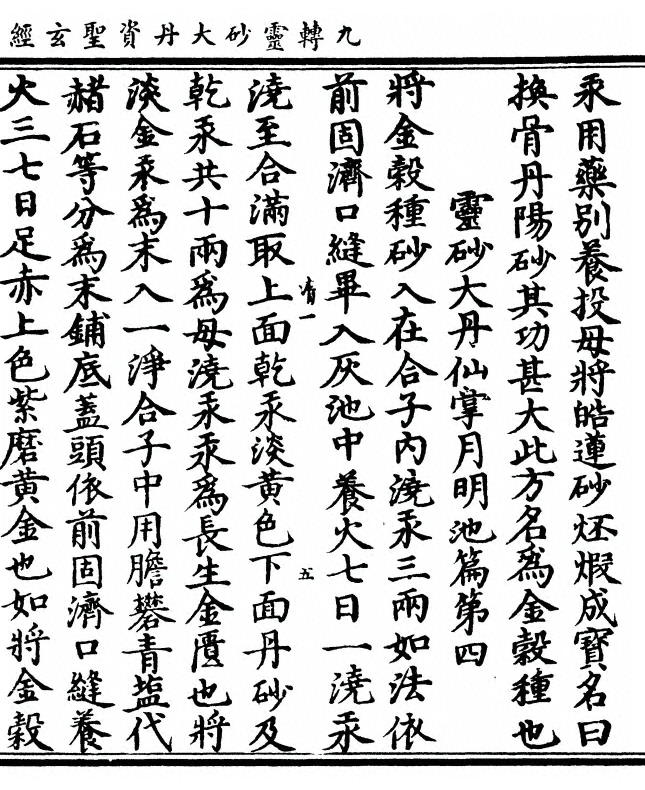 九轉靈砂大丹資聖玄經
汞用藥別養投母將皓蓮砂坯煆成寳名曰
換骨丹陽砂其功甚大此方名爲金穀種也
靈砂大丹仙掌月明池篇第四
將金穀種砂入在合子內澆汞三兩如法依
前固濟口縫畢入灰池中養火七日一澆汞
清一 五
澆至合滿取上面乾汞淡黄色下面丹砂及
乾汞共十兩爲母澆汞汞爲長生金匱也將
淡金汞爲末入一淨合子中用膽礬青盐代
赭石等分爲末鋪底蓋頭依前固濟口縫養
火三七日足赤上色紫磨黄金也如將金穀